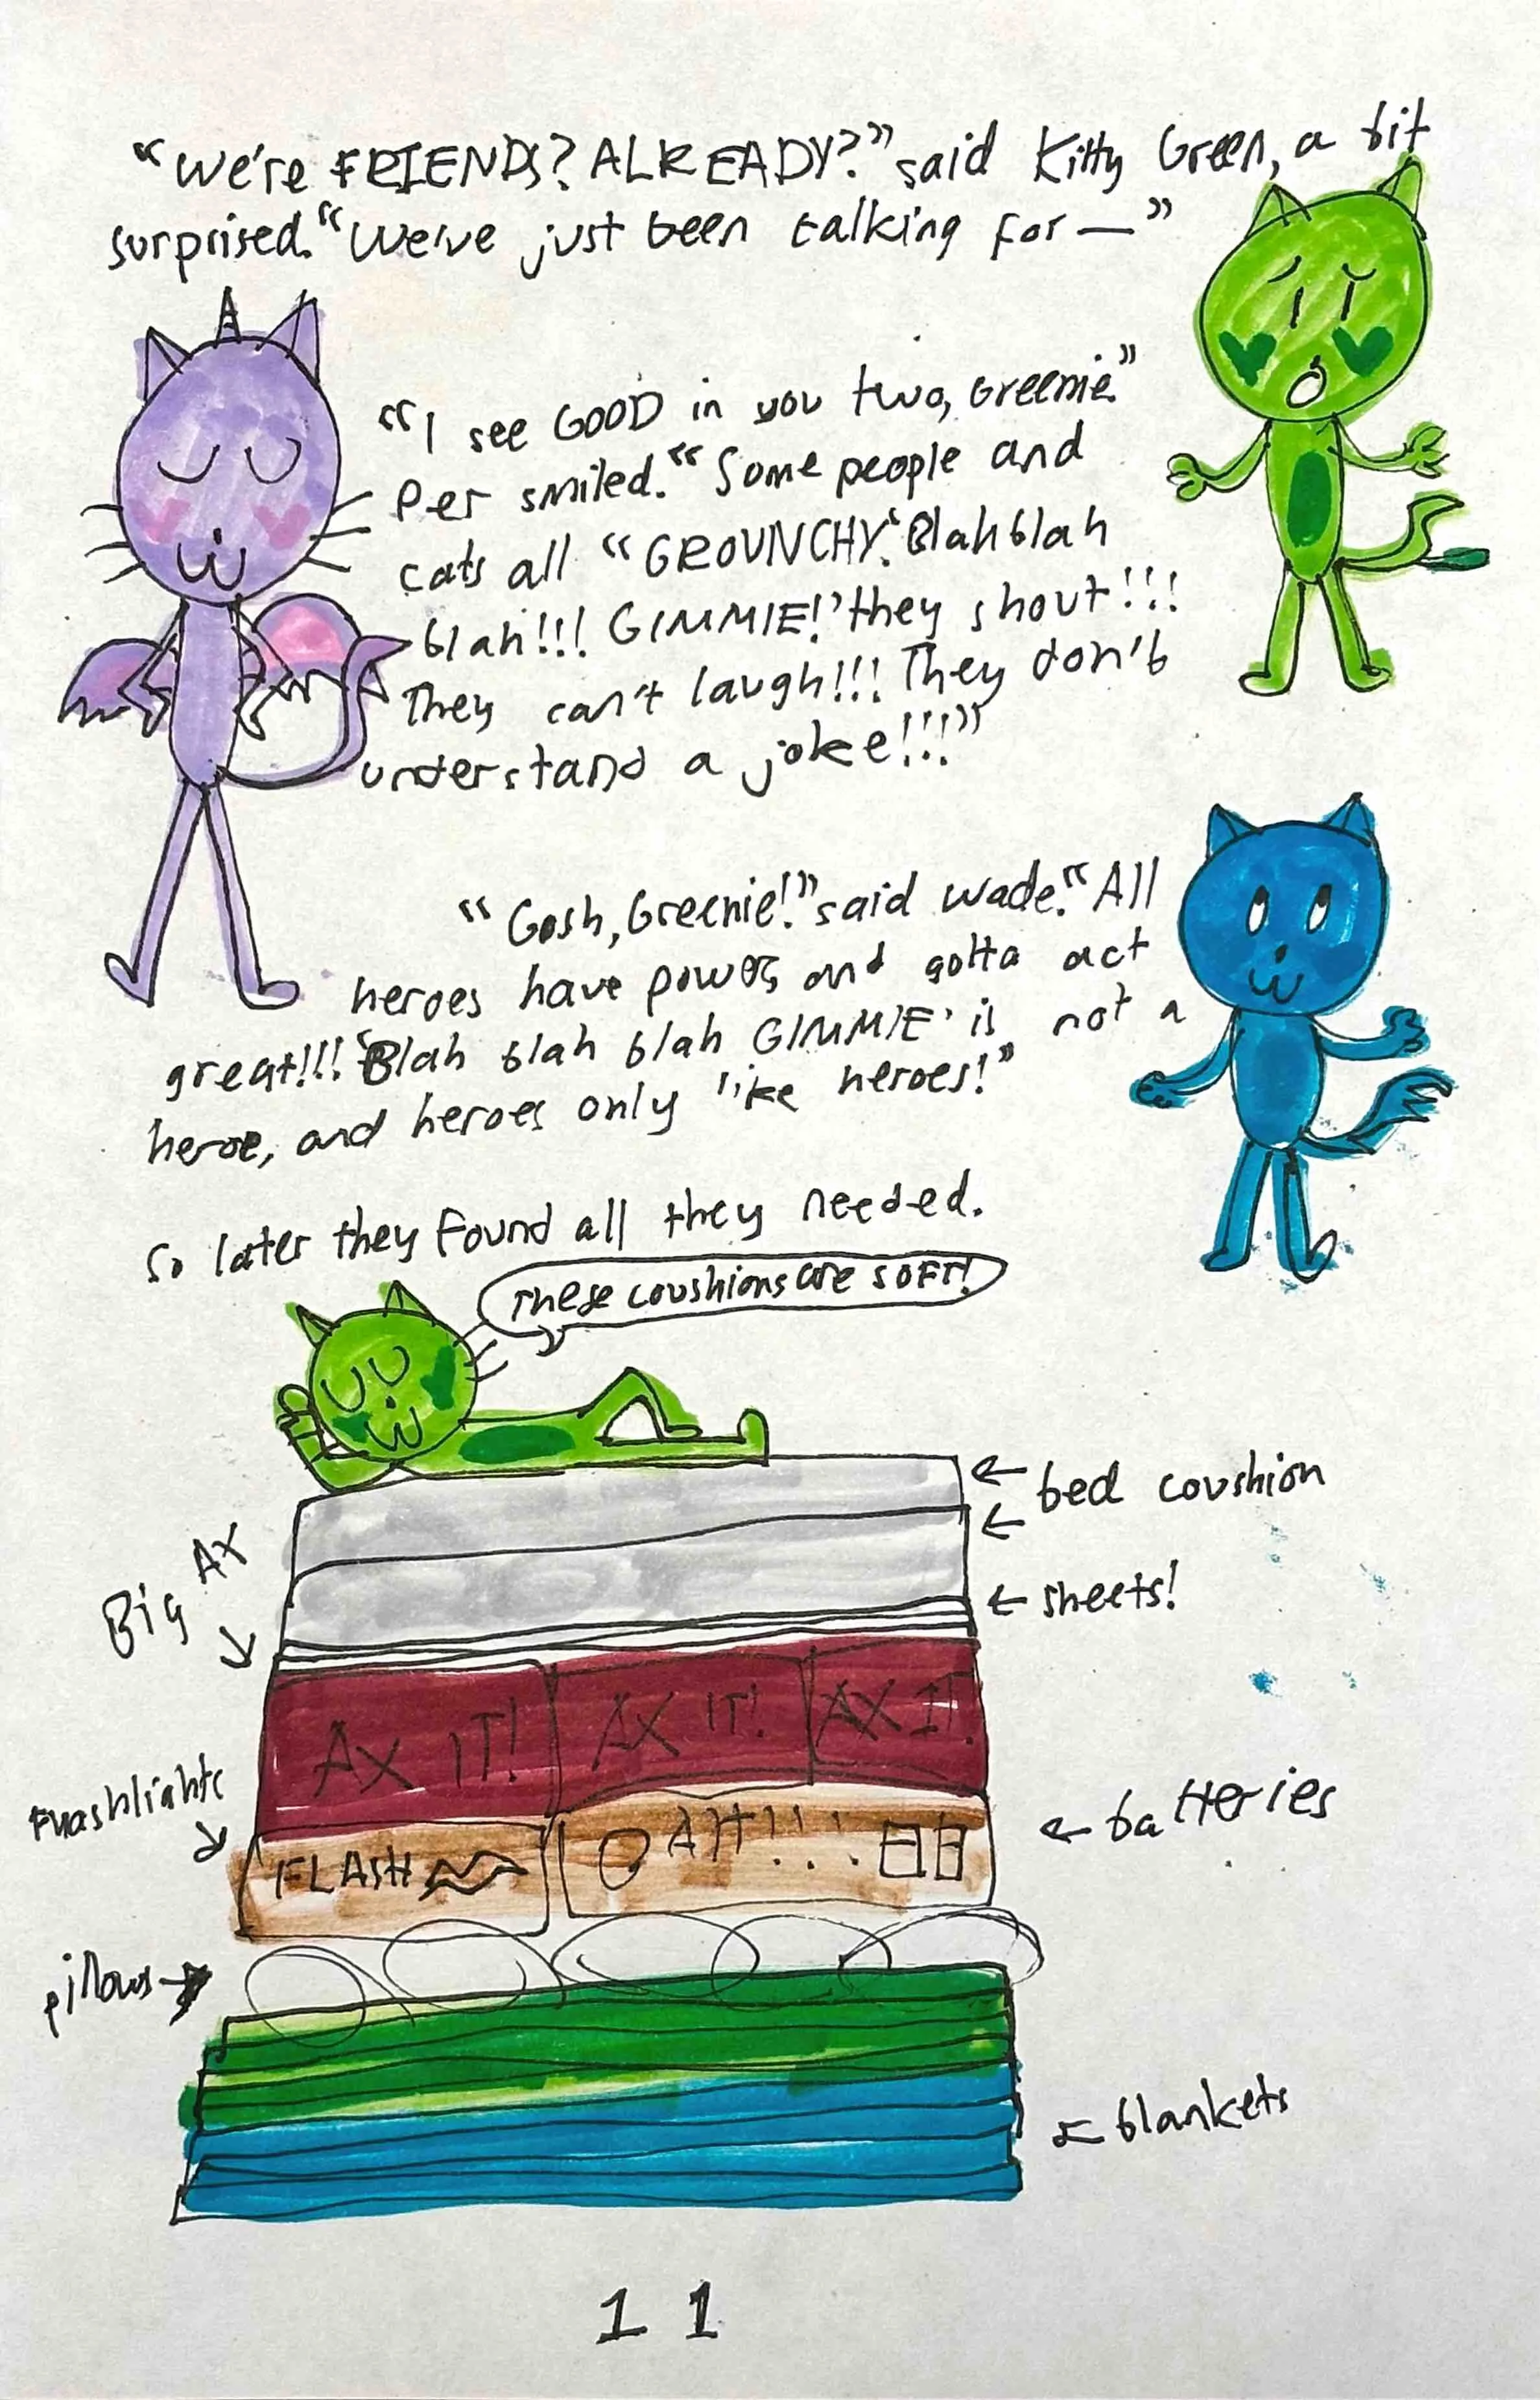 “We're FRIENDS? ALREADY?” said Kitty Green, a bit
surprised. “We've just been talking for — ”
“I see GOOD in you two, Greenie.”
Per smiled. “Some people and
cats all “GROUNCHY.‘Blah blah
blah!!! GIMMIE!’ they shout!!!
They can't laugh!!! They don't
understand a joke!!!”
“Gosh, Greenie!” said Wade. “All
heroes have power, and gotta act
great!!! ‘Blah blah blah GIMMIE’ is not a
heroe, and heroes only like heroes!”
So later they found all they needed.
These coushions are SOFT!
← bed coushion
←
Big AX
← sheets!
AX IT! AX IT! AX IT!
← batteries
FLASH AH!!!
pillows →
← blankets
11